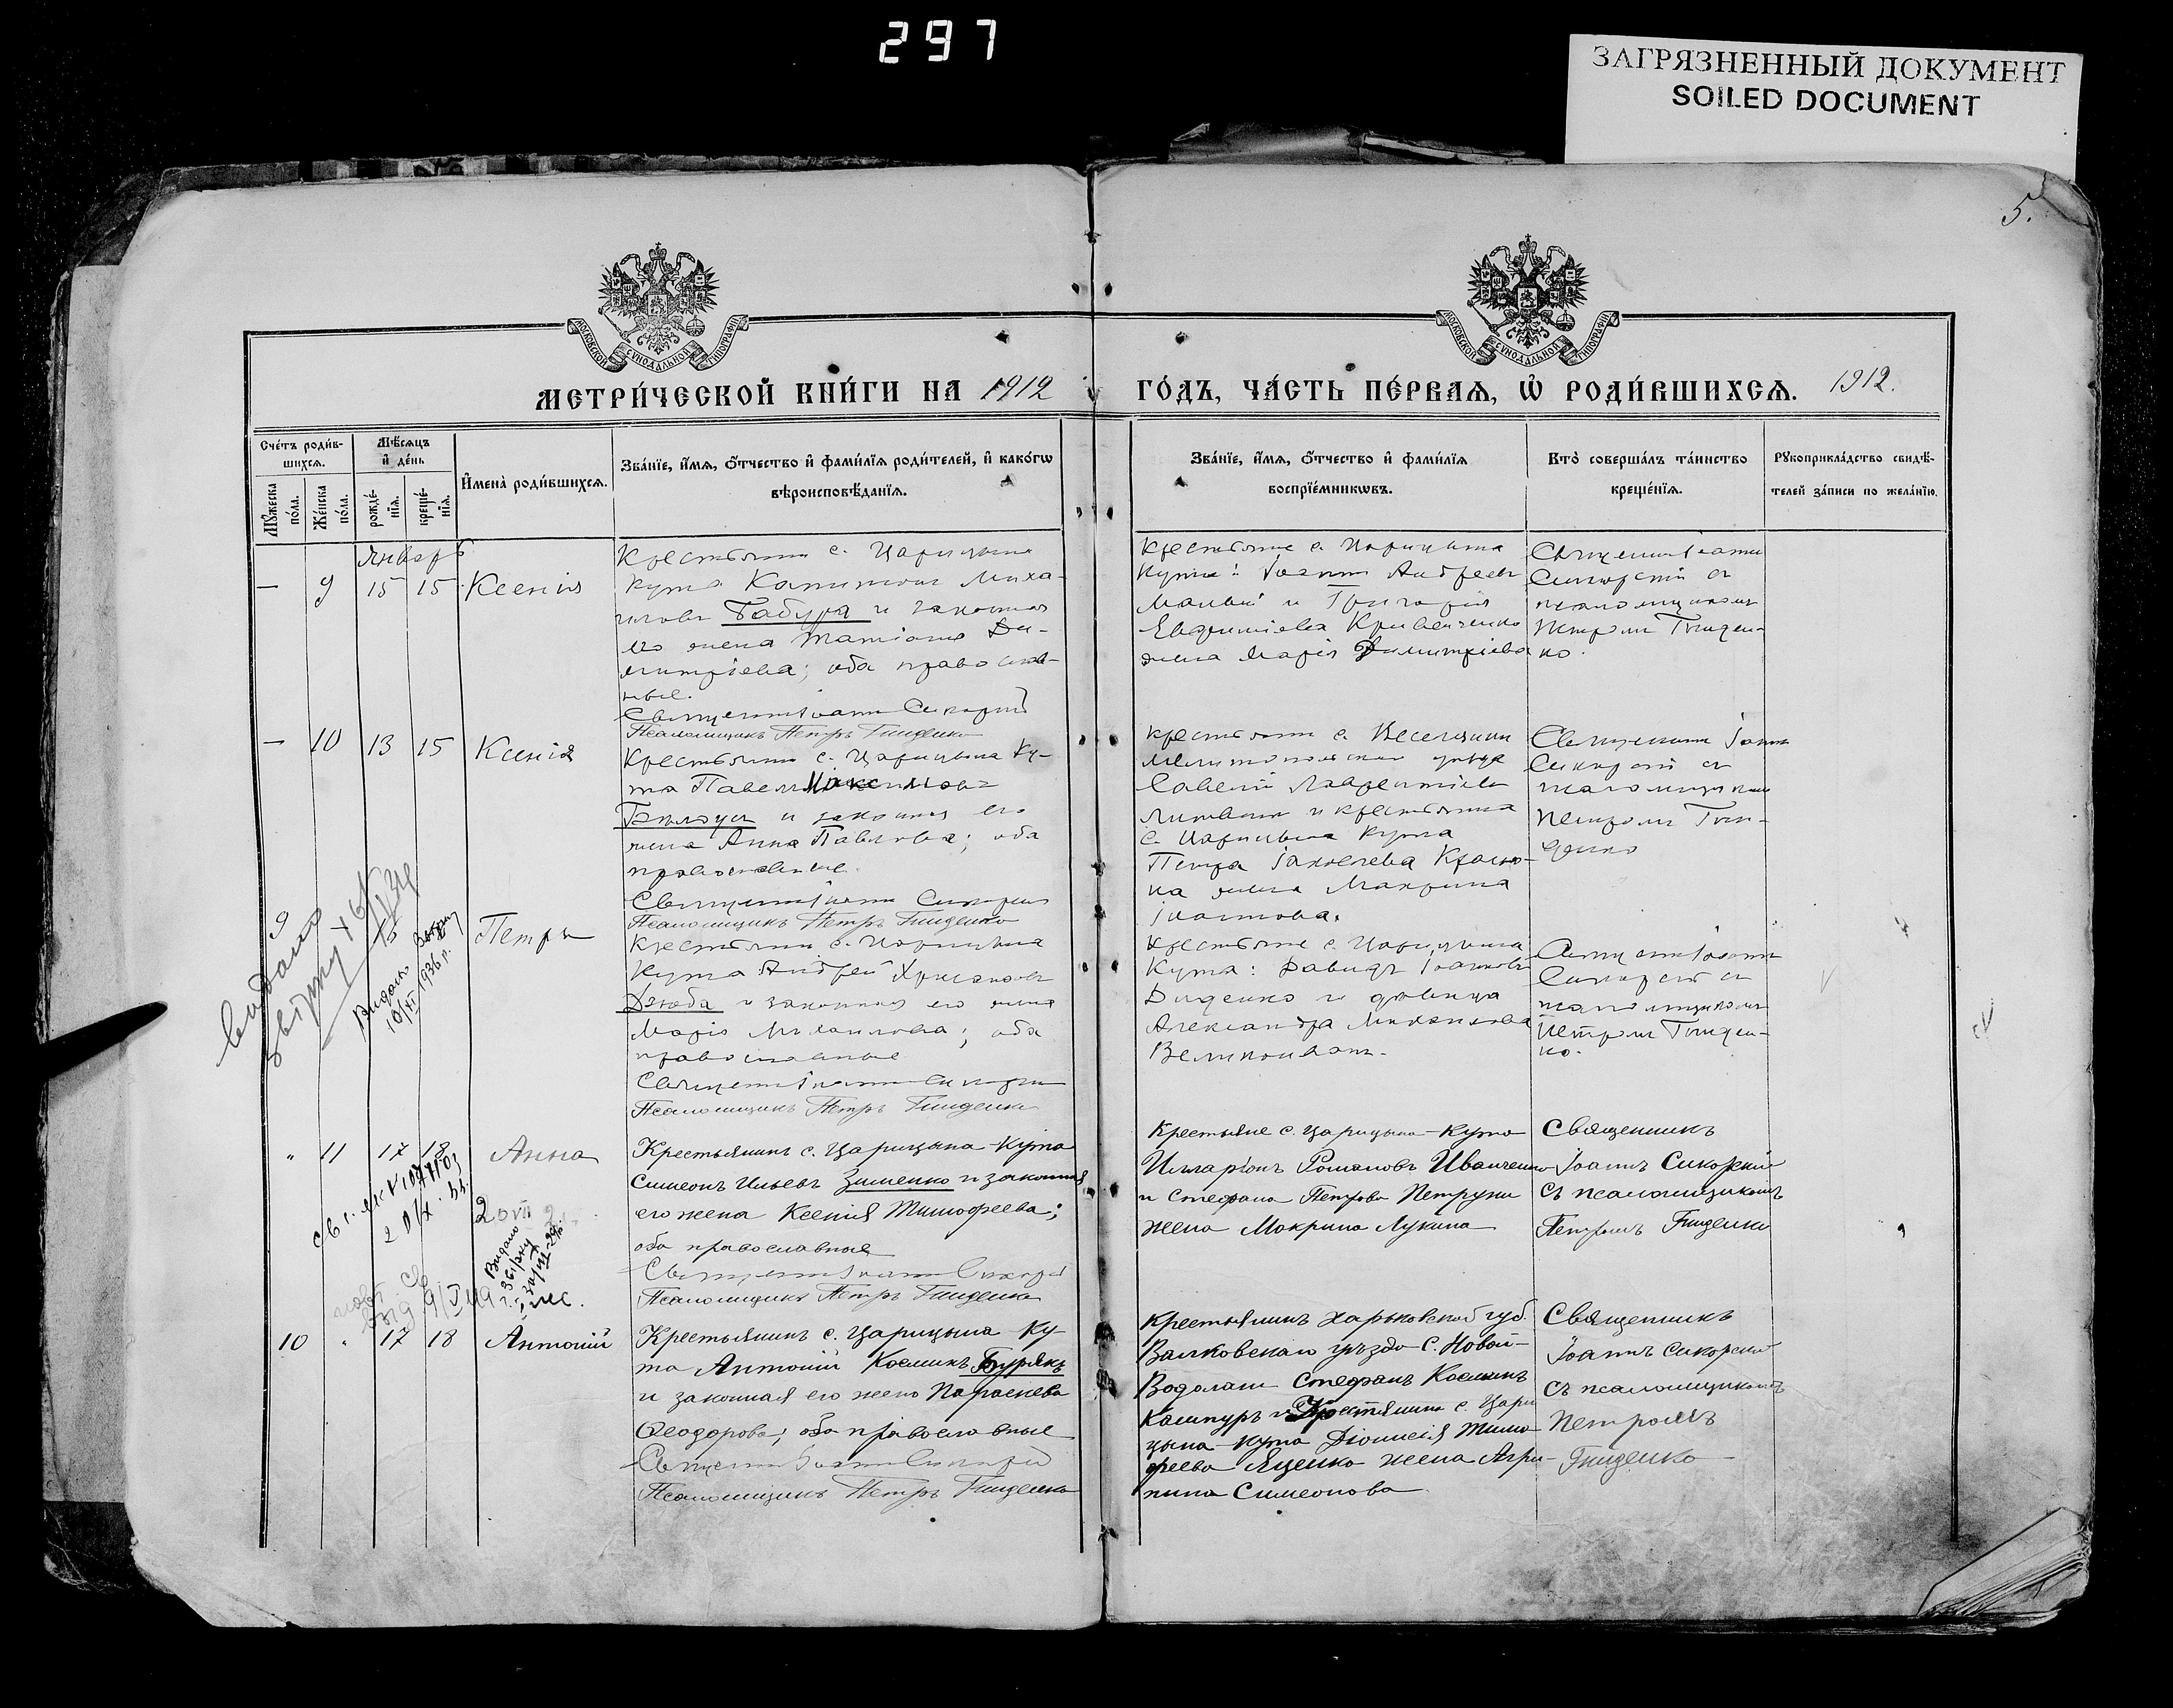 297
ЗАГРЯЗНЕННЫЙ ДОКУМЕНТ
SOILED DOCUMENT
5.
МОСКОВСКОЙ СѴНОДАЛЬНОЙ ТИПОГРАФІИ
МОСКОВСКОЙ СѴНОДАЛЬНОЙ ТИПОГРАФІИ
МЕТРИ́ЧЕСКОЙ КНИ́ГИ НА 1912
ГО́ДЪ, ЧА́СТЬ ПЕ́РВАѦ, Ѡ҆ РОДИ́ВШИХСѦ. 1912.
Сче́тъ роди́в-
шихсѧ.
Мꙋ́жеска по́ла.
Же́нска по́ла.
Мѣ́сѧцъ
и҆ де́нь
рожде́-
нїѧ.
креще́-
нїѧ.
И҆мена̀ роди́вшихсѧ.
Зва́нїе, и҆́мѧ, ѻ҆́тчество и҆ фами́лїѧ роди́телей, и҆ како́гѡ
вѣроисповѣ́данїѧ.
Зва́нїе, и҆́мѧ, ѻ҆́тчество и҆ фами́лїѧ
воспрїе́мникѡвъ.
Кто̀ соверша́лъ та́инство
креще́нїѧ.
Рꙋкоприкла́дство свидѣ́-
телей за́писи по жела́нїю.
Январь
— 9 15 15 Ксенія
Крестьянин с. Царицына
Кута Капитон Миха-
илов Бабура и законная
его жена Татиана Ди-
митріева; оба православ-
ные.
Священник Іоанн Сикорскій
Псаломщикъ Петръ Гниденко
Крестьяне с. Царицына
Кута: Іоанн Андреев
Малый и Григорія
Евфиміева Кривенченко
жена Марія Димитріева
Священник Іоанн
Сикорскій с
псаломщиком
Петром Гниден-
ко.
— 10 13 15 Ксенія
Крестьянин с. Царицына Ку-
та Павел Максимовъ
Бѣлоус и законная его
жена Анна Павлова; оба
православные.
Священник Іоанн Сикорскій
Псаломщикъ Петръ Гниденко
крестьянин с. Веселаго
Мелитопольскаго уѣзда
Савелій Лаврентіев
Литвин и крестьянина
с. Царицына Кута
Петра Іаковлева Красно-
ка жена Макрина
Іоаннова.
Священник Іоанн
Сикорскій с
псаломщиком
Петром Гни-
денко
9 Петръ
видано
10/VI 1936 р.
Крестьянин с. Царицына
Кута Андрей Хрисанфов
Дзюба и законная его жена
Марія Михаилова; оба
православные
Священник Іоанн Сикорскій
Псаломщикъ Петръ Гниденко
Крестьяне с. Царицына
Кута: Давидъ Іоаннов
Диденко и дѣвица
Александра Михаилова
Великоиван.
Священник Іоанн
Сикорскій с
псаломщиком
Петром Гниден-
ко.
" 11 17 18 Анна
Крестьянинъ с. Царицына-Кута
Симеонъ Ильевъ Зименко и законная
его жена Ксенія Тимофеева;
оба православные
Священник Іоанн Сикорскій
Псаломщикъ Петръ Гниденко
Крестьяне с. Царицына-Кута
Илларіонъ Романовъ Иванченко
и Стефана Петрова Петруни
жена Макрина Лукина
Священникъ
Іоаннъ Сикорскій
съ псаломщикомъ
Петромъ Гниденко
10 " 17 18 Антоній
Крестьянинъ с. Царицына Ку-
та Антоній Косминъ Бурякъ
и законная его жена Параскева
Ѳеодорова; оба православные
Священник Іоанн Сикорскій
Псаломщикъ Петръ Гниденко
Крестьянинъ Харьковской губ.
Валковскаго уѣзда с. Новой-
Водолаги Стефанъ Косминъ
Кашпуръ и Крестьянина с. Цари
цына-Кута Діонисія Тимо
феева Яценко жена Агри-
пина Симеонова
Священникъ
Іоаннъ Сикорскій
съ псаломщикомъ
Петромъ
Гниденко